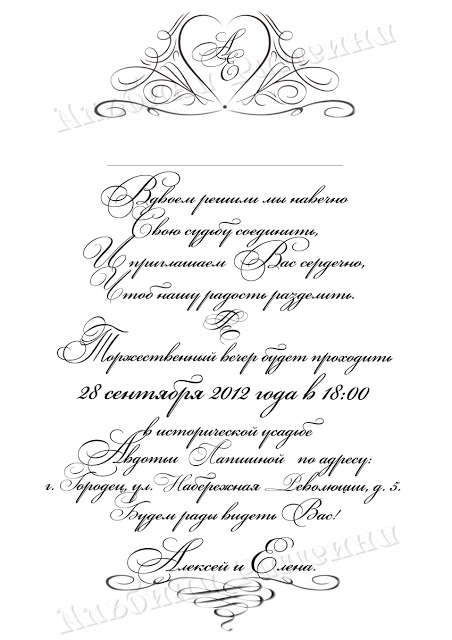 А
Е
Вдвоем решили мы навечно
Свою судьбу соединить,
И приглашаем Вас сердечно,
Чтоб нашу радость разделить.
Торжественный вечер будет проходить
28 сентября 2012 года в 18:00
в исторической усадьбе
Авдотьи Лапшиной по адресу:
г. Городец, ул. Набережная Революции, д. 5.
Будем рады видеть Вас!
Алексей и Елена.